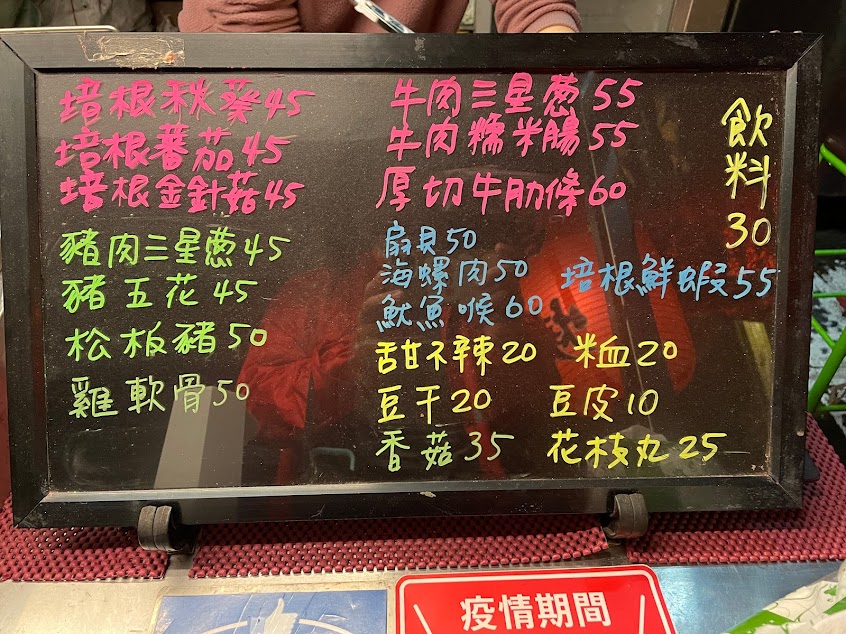 培根秋葵45
培根蕃茄45
培根金針菇45
豬肉三星蔥45
豬五花45
松板豬50
雞軟骨50
牛肉三星蔥55
牛肉糯米腸55
厚切牛肋條60
扇貝50
海螺肉50
培根鮮蝦55
魷魚喉60
甜不辣20
米血20
豆干20
豆皮10
香菇35
花枝丸25
飲料30
疫情期間